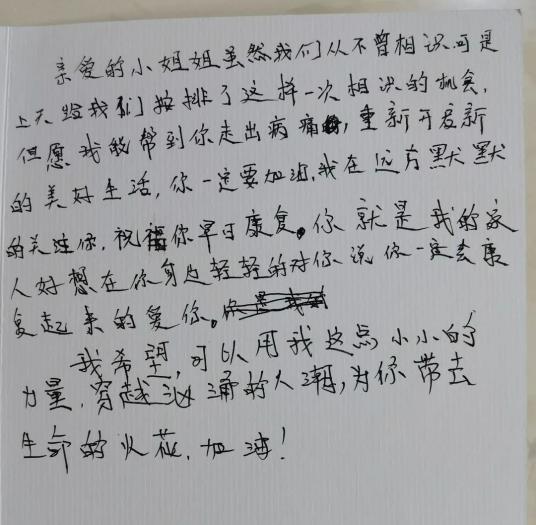 亲爱的小姐姐虽然我们从不曾相识可是
上天给我们按排了这样一次相识的机会,
但愿我能帮到你走出病痛,重新开启新
的美好生活,你一定要加油,我在远方默默
的关注你,祝福你早日康复。你就是我的家
人好想在你身边轻轻的对你说你一定会康
复起来的爱你。
我希望,可以用我这点小小的
力量,穿越汹涌的人潮,为你带去
生命的火花,加油!